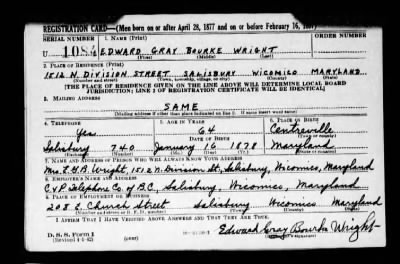 REGISTRATION CARD—(Men born on or after April 28, 1877 and on or before February 16, 1897)
SERIAL NUMBER 1. NAME (Print) ORDER NUMBER
U 1084 EDWARD GRAY BOURKE WRIGHT
(First) (Middle) (Last)
2. PLACE OF RESIDENCE (Print)
1512 N. DIVISION STREET SALISBURY WICOMICO MARYLAND
(Number and street) (Town, township, village, or city) (County) (State)
[THE PLACE OF RESIDENCE GIVEN ON THE LINE ABOVE WILL DETERMINE LOCAL BOARD
JURISDICTION; LINE 2 OF REGISTRATION CERTIFICATE WILL BE IDENTICAL]
3. MAILING ADDRESS
SAME
(Mailing address if other than place indicated on line 2. If same insert word same)
4. TELEPHONE 5. AGE IN YEARS 6. PLACE OF BIRTH
Yes 64 Centreville
DATE OF BIRTH (Town or county)
Salisbury 740 January 16 1878 Maryland
(Exchange) (Number) (Mo.) (Day) (Yr.) (State or country)
7. NAME AND ADDRESS OF PERSON WHO WILL ALWAYS KNOW YOUR ADDRESS
Mrs. E.G.B. Wright, 1512 N. Division St., Salisbury, Wicomico, Maryland
8. EMPLOYER'S NAME AND ADDRESS
C & P Telephone Co. of B.C. Salisbury, Wicomico, Maryland
9. PLACE OF EMPLOYMENT OR BUSINESS
208 E. Church Street Salisbury Wicomico Maryland
(Number and street or R. F. D. number) (Town) (County) (State)
I AFFIRM THAT I HAVE VERIFIED ABOVE ANSWERS AND THAT THEY ARE TRUE.
D. S. S. Form 1
(Revised 4-1-42) (over) Edward Gray Bourke Wright
(Registrant's signature)